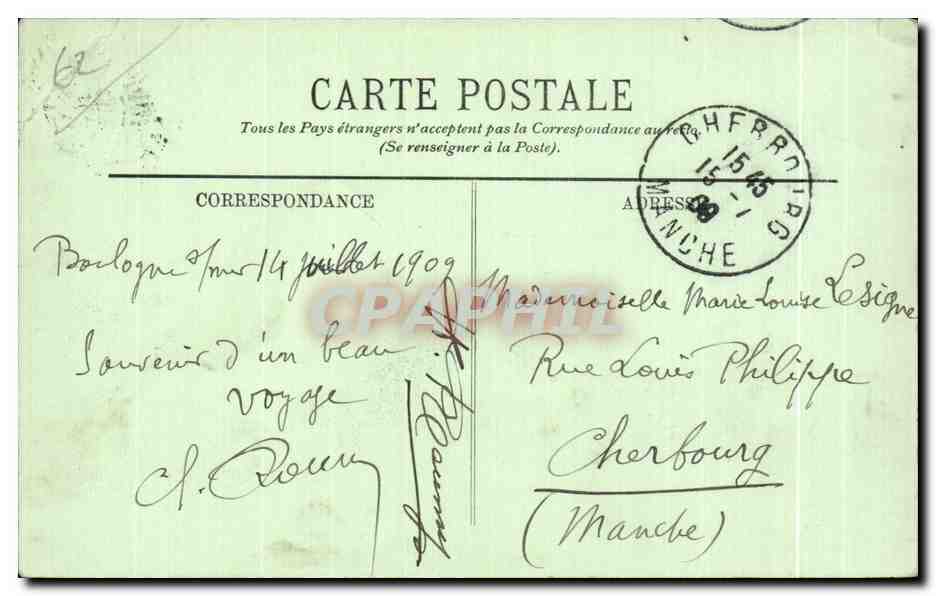 62
CARTE POSTALE
Tous les Pays étrangers n'acceptent pas la Correspondance au recto.
(Se renseigner à la Poste).
CORRESPONDANCE
ADRESSE
CHERBOURG
15 45
15 - 1
09
MANCHE
Boulogne s/mer 14 juillet 1909
Souvenir d'un beau
voyage
Mademoiselle Marie Louise Lesigne
Rue Louis Philippe
Cherbourg
(Manche)
CPAPHIL